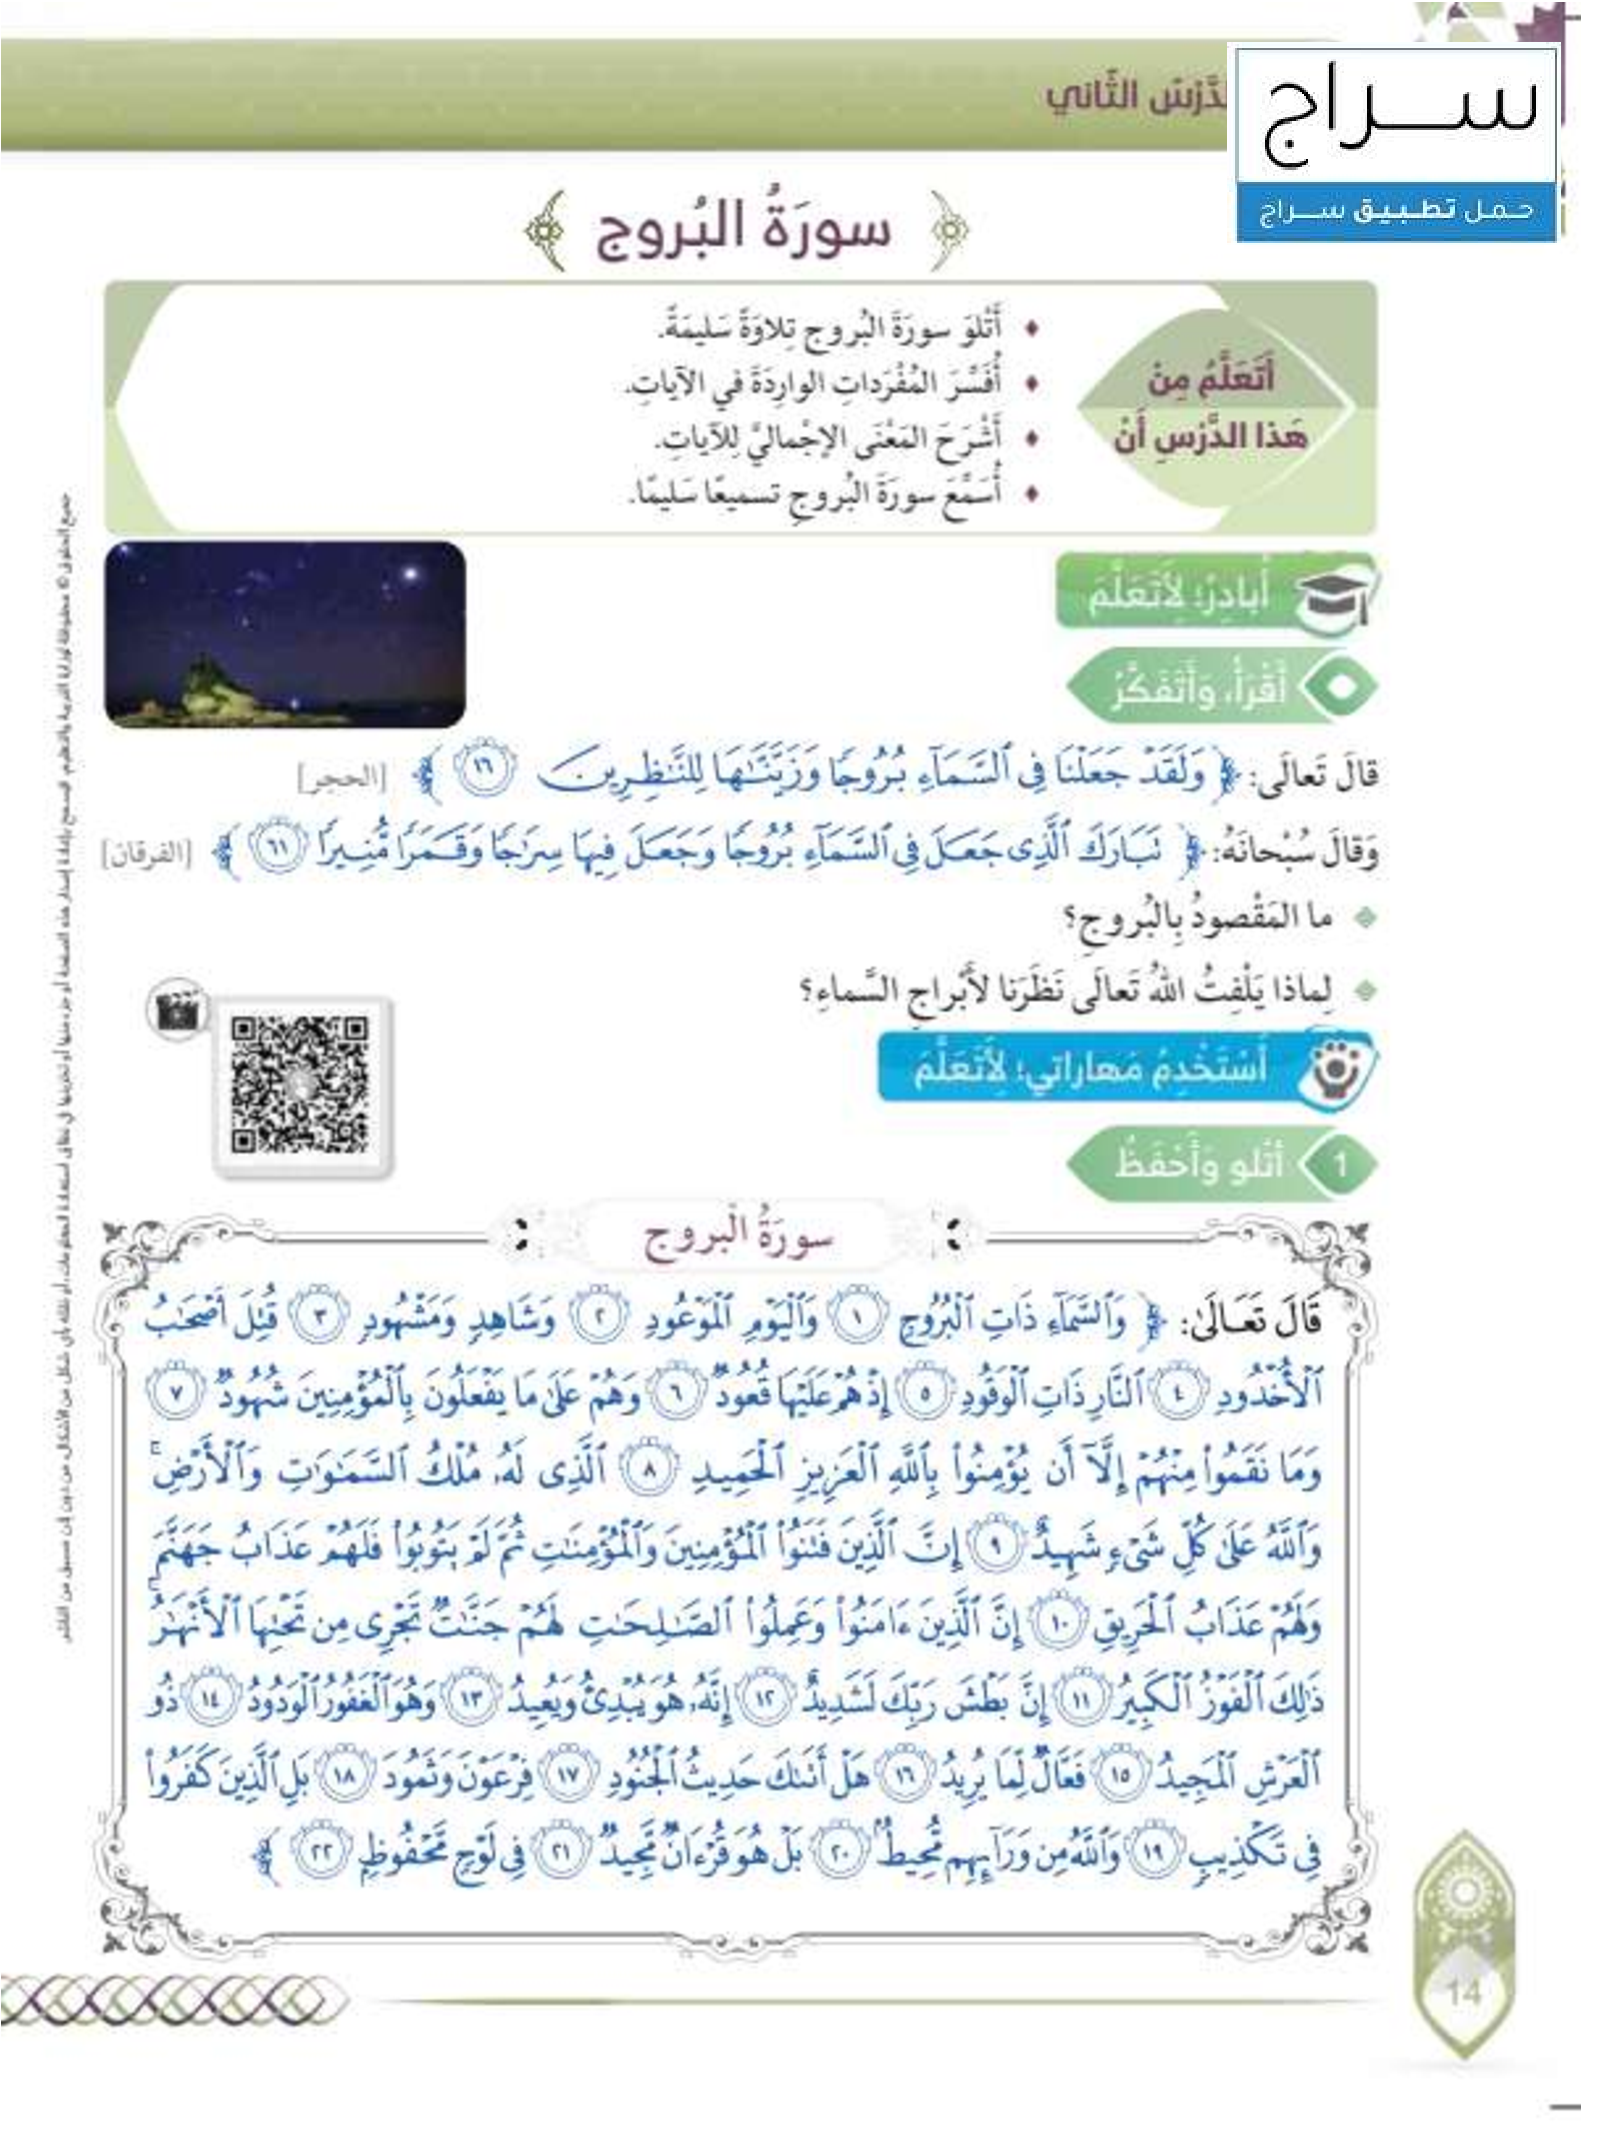 الدَّرْسُ الثّاني
سراج
حمل تطبيق سراج
سورَةُ البُروج
أَتَعَلَّمُ مِنْ
هَذا الدَّرْسِ أَنْ
أَتْلوَ سورَةَ البُروج تِلاوَةً سَليمَةً.
أُفَسِّرَ المُفْرَداتِ الوارِدَةَ في الآياتِ.
أَشْرَحَ المَعْنَى الإجْماليَّ لِلآياتِ.
أُسَمِّعَ سورَةَ البُروجِ تسميعًا سَليمًا.
أُبادِرُ؛ لِأَتَعَلَّمَ
أَقْرَأُ، وَأَتَفَكَّرُ
قالَ تَعالَى: ﴿ وَلَقَدْ جَعَلْنَا فِى ٱلسَّمَآءِ بُرُوجًا وَزَيَّنَّـٰهَا لِلنَّـٰظِرِينَ ١٦ ﴾ [الحجر]
وَقالَ سُبْحانَهُ: ﴿ تَبَارَكَ ٱلَّذِى جَعَلَ فِى ٱلسَّمَآءِ بُرُوجًا وَجَعَلَ فِيهَا سِرَٰجًا وَقَمَرًا مُّنِيرًا ٦١ ﴾ [الفرقان]
ما المَقْصودُ بِالبُروجِ؟
لِماذا يَلْفِتُ اللهُ تَعالَى نَظَرَنا لأَبْراجِ السَّماءِ؟
أَسْتَخْدِمُ مَهاراتي؛ لِأَتَعَلَّمَ
1 أَتْلو وَأَحْفَظُ
سورَةُ الْبروج
قَالَ تَعَالَىٰ: ﴿ وَٱلسَّمَآءِ ذَاتِ ٱلْبُرُوجِ ١ وَٱلْيَوْمِ ٱلْمَوْعُودِ ٢ وَشَاهِدٍ وَمَشْهُودٍ ٣ قُتِلَ أَصْحَـٰبُ
ٱلْأُخْدُودِ ٤ ٱلنَّارِ ذَاتِ ٱلْوَقُودِ ٥ إِذْ هُمْ عَلَيْهَا قُعُودٌ ٦ وَهُمْ عَلَىٰ مَا يَفْعَلُونَ بِٱلْمُؤْمِنِينَ شُهُودٌ ٧
وَمَا نَقَمُوا۟ مِنْهُمْ إِلَّآ أَن يُؤْمِنُوا۟ بِٱللَّهِ ٱلْعَزِيزِ ٱلْحَمِيدِ ٨ ٱلَّذِى لَهُۥ مُلْكُ ٱلسَّمَـٰوَٰتِ وَٱلْأَرْضِ ۚ
وَٱللَّهُ عَلَىٰ كُلِّ شَىْءٍ شَهِيدٌ ٩ إِنَّ ٱلَّذِينَ فَتَنُوا۟ ٱلْمُؤْمِنِينَ وَٱلْمُؤْمِنَـٰتِ ثُمَّ لَمْ يَتُوبُوا۟ فَلَهُمْ عَذَابُ جَهَنَّمَ
وَلَهُمْ عَذَابُ ٱلْحَرِيقِ ١٠ إِنَّ ٱلَّذِينَ ءَامَنُوا۟ وَعَمِلُوا۟ ٱلصَّـٰلِحَـٰتِ لَهُمْ جَنَّـٰتٌ تَجْرِى مِن تَحْتِهَا ٱلْأَنْهَـٰرُ ۚ
ذَٰلِكَ ٱلْفَوْزُ ٱلْكَبِيرُ ١١ إِنَّ بَطْشَ رَبِّكَ لَشَدِيدٌ ١٢ إِنَّهُۥ هُوَ يُبْدِئُ وَيُعِيدُ ١٣ وَهُوَ ٱلْغَفُورُ ٱلْوَدُودُ ١٤ ذُو
ٱلْعَرْشِ ٱلْمَجِيدُ ١٥ فَعَّالٌ لِّمَا يُرِيدُ ١٦ هَلْ أَتَىٰكَ حَدِيثُ ٱلْجُنُودِ ١٧ فِرْعَوْنَ وَثَمُودَ ١٨ بَلِ ٱلَّذِينَ كَفَرُوا۟
فِى تَكْذِيبٍ ١٩ وَٱللَّهُ مِن وَرَآئِهِم مُّحِيطٌۢ ٢٠ بَلْ هُوَ قُرْءَانٌ مَّجِيدٌ ٢١ فِى لَوْحٍ مَّحْفُوظٍۭ ٢٢ ﴾
14